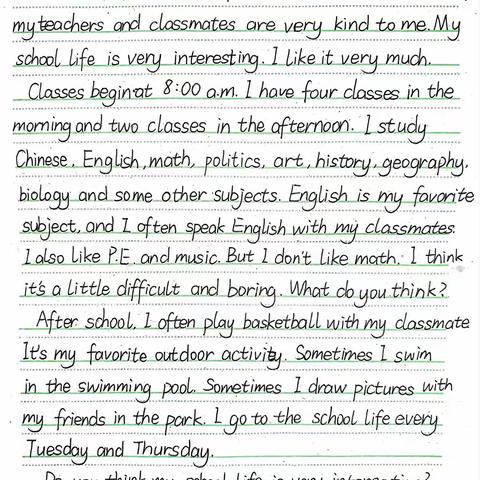 my teachers and classmates are very kind to me. My
school life is very interesting. I like it very much.
Classes begin at 8:00 a.m. I have four classes in the
morning and two classes in the afternoon. I study
Chinese, English, math, politics, art, history, geography,
biology and some other subjects. English is my favorite
subject, and I often speak English with my classmates.
I also like P.E. and music. But I don't like math. I think
it's a little difficult and boring. What do you think?
After school, I often play basketball with my classmate
It's my favorite outdoor activity. Sometimes I swim
in the swimming pool. Sometimes I draw pictures with
my friends in the park. I go to the school life every
Tuesday and Thursday.
Do you think my school life is very interesting?